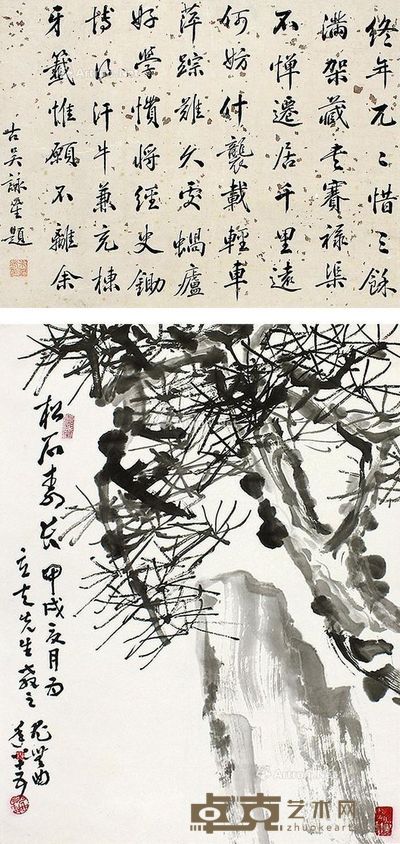 終年兀〻惜三餘
滿架藏書賽祿渠
不憚遷居千里遠
何妨什襲載輕車
萍踪難久處蝸廬
好學慣將經史鋤
博得汗牛兼充棟
牙籤惟願不離余
古吴詠 題
松石壽長 甲戌 月
立夫先生教之
卓克艺术网